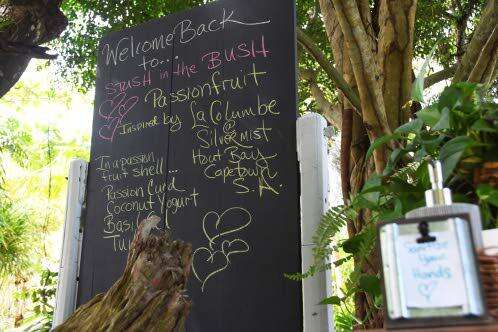 Welcome Back
to...
STUSH in the BUSH
Passionfruit
Inspired by La Columbe
@
Silvermist
Hout Bay
Cape town
S.A.
In a passion
fruit shell...
Passion Curd
Coconut Yogurt
Basil
Tu
Your
Hands